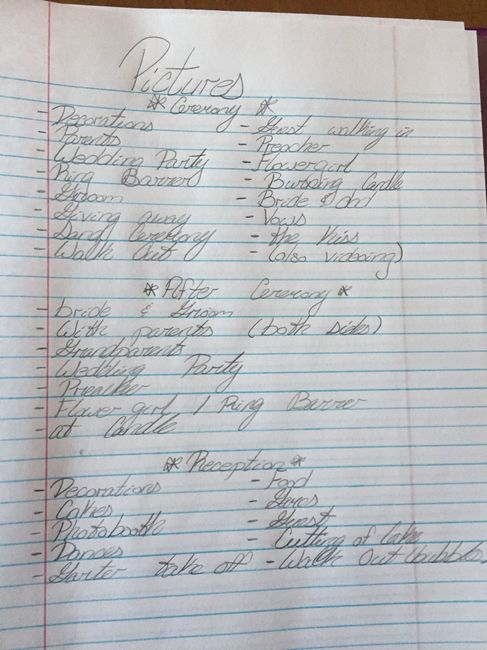 Pictures
* Ceremony *
- Decorations
- Parents
- Wedding Party
- Ring Barrer
- Groom
- Giving away
- Sand Ceremony
- Walk Out
- Guest walking in
- Preacher
- Flowergirl
- Burning Candle
- Bride & Dad
- Vows
- the Kiss
- (also videoing)
* After Ceremony *
- bride & Groom
- With parents (both sides)
- Grandparents
- Wedding Party
- Preacher
- Flower girl / Ring Barrer
- at Candle
* Reception *
- Decorations
- Cakes
- Photobooth
- Dances
- Garter take off
- Food
- Guest
- Cutting of Cake
- Walk Out